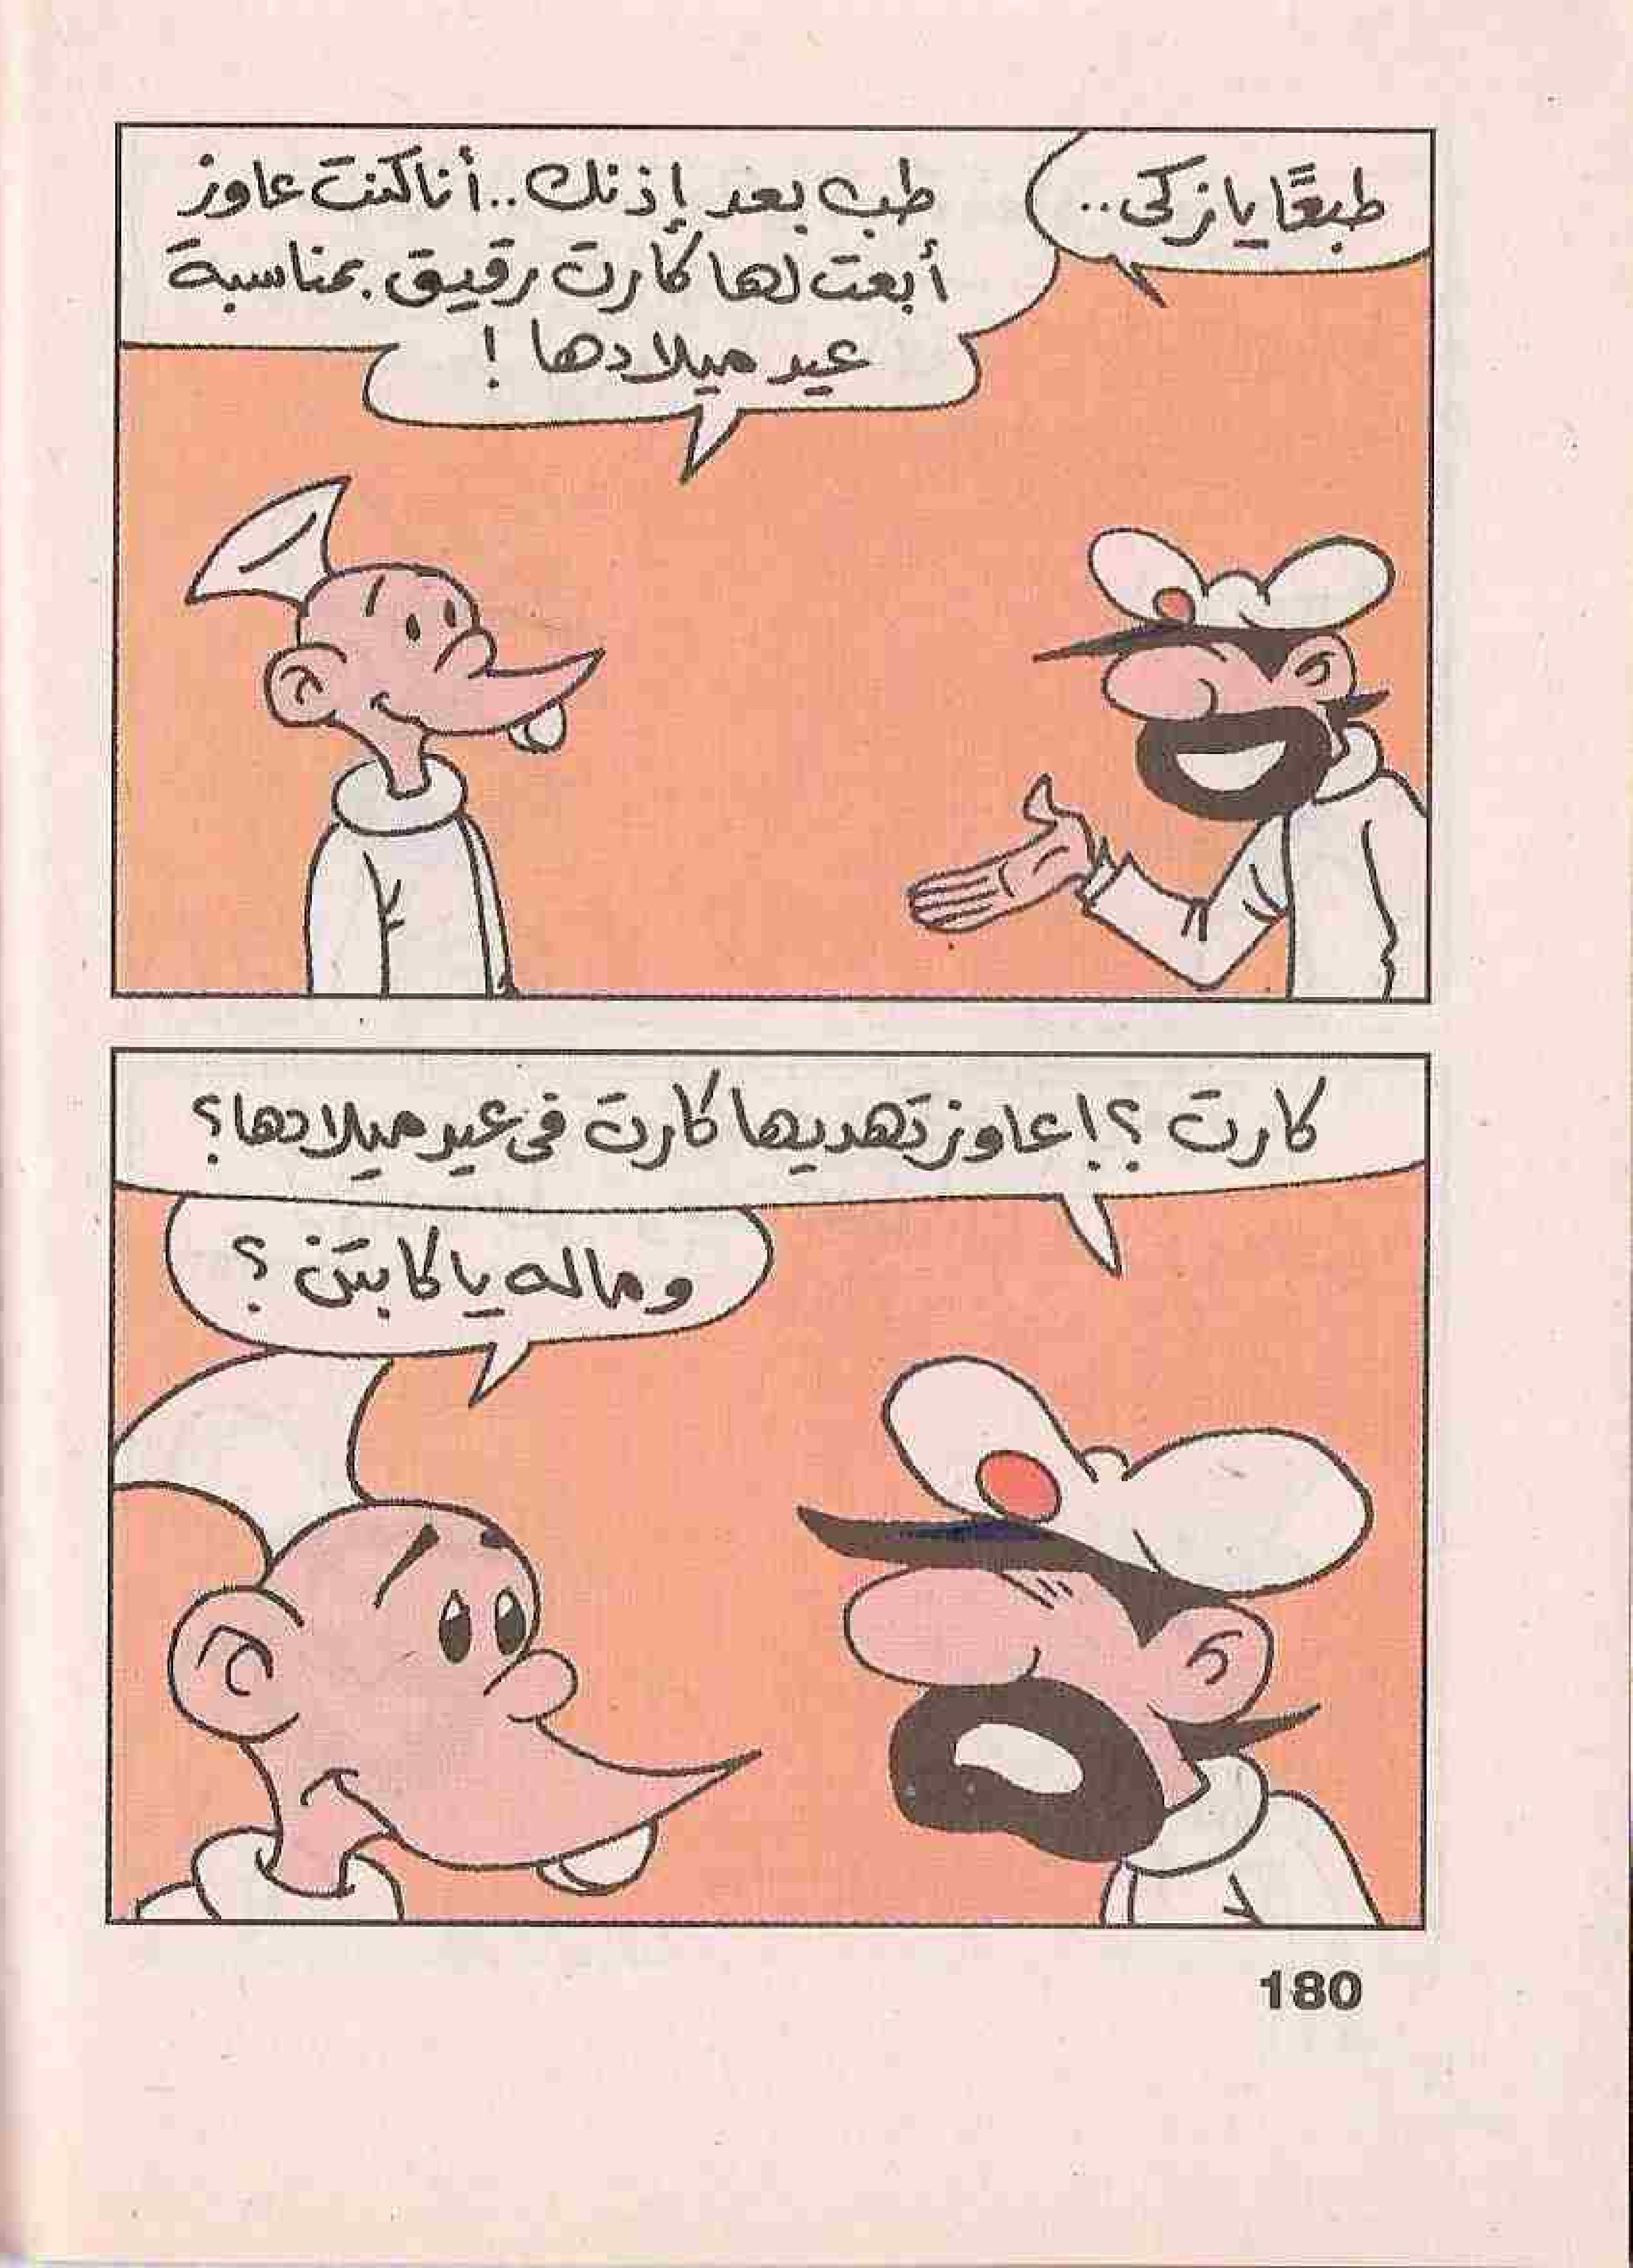 طبعًا يا زكى..
طب بعد إذنك.. أنا كنت عاوز
أبعت لها كارت رقيق بمناسبة
عيد ميلادها !
كارت ؟! عاوز تهديها كارت فى عيد ميلادها؟
وماله يا كابتن ؟
180